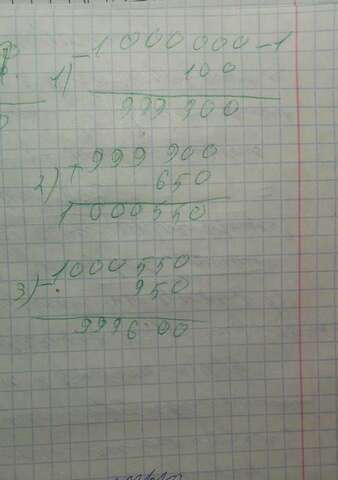 1) - 1 000 000 - 1
100
999 900
2) + 999 900
650
1 000550
3) - 1000 550
950
9996·00